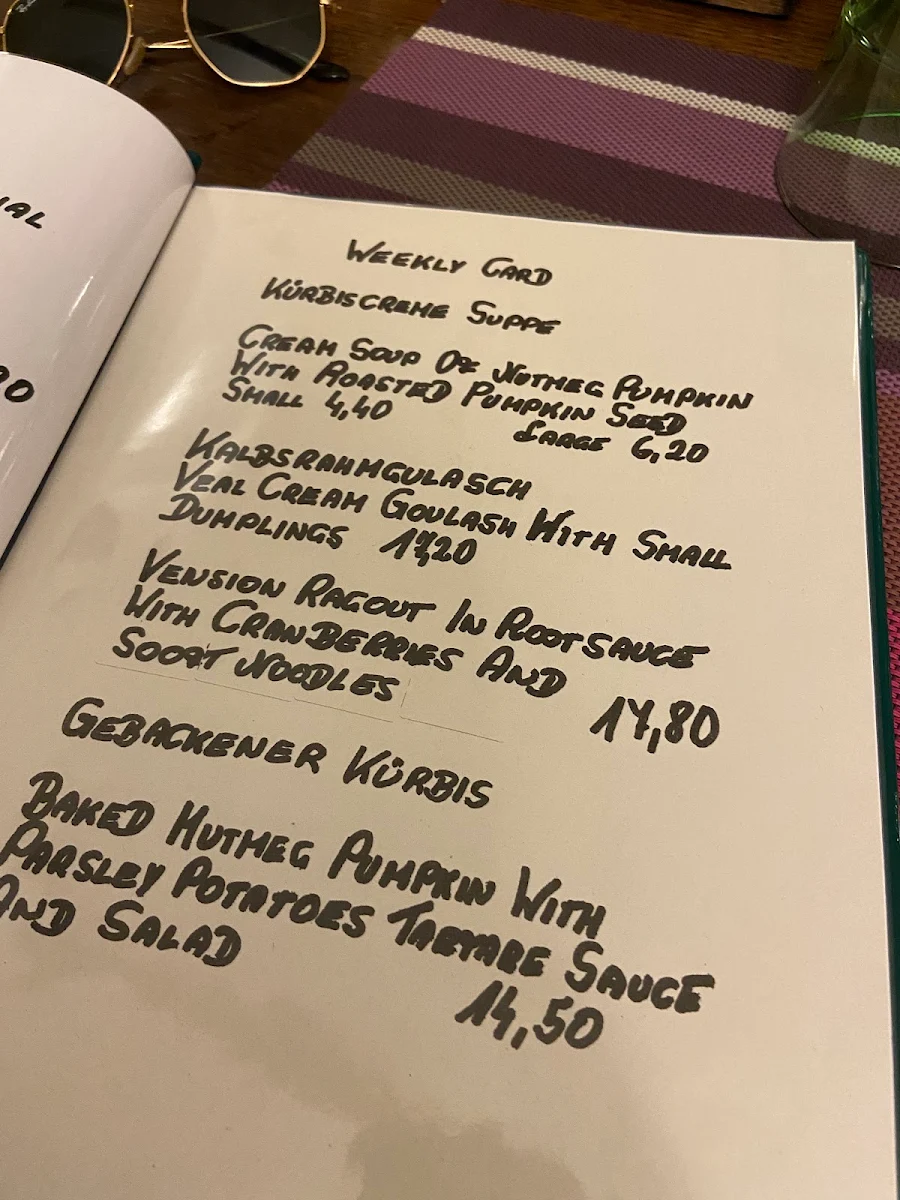 IAL
90
WEEKLY CARD
KÜRBISCREME SUPPE
CREAM SOUP OF NUTMEG PUMPKIN
WITH ROASTED PUMPKIN SEED
SMALL 4,40 LARGE 6,20
KALBSRAHMGULASCH
VEAL CREAM GOULASH WITH SMALL
DUMPLINGS 17,20
VENSION RAGOUT IN ROOTSAUCE
WITH CRANBERRIES AND
SOOAT NOODLES 17,80
GEBACKENER KÜRBIS
BAKED NUTMEG PUMPKIN WITH
PARSLEY POTATOES TARTARE SAUCE
AND SALAD
14,50